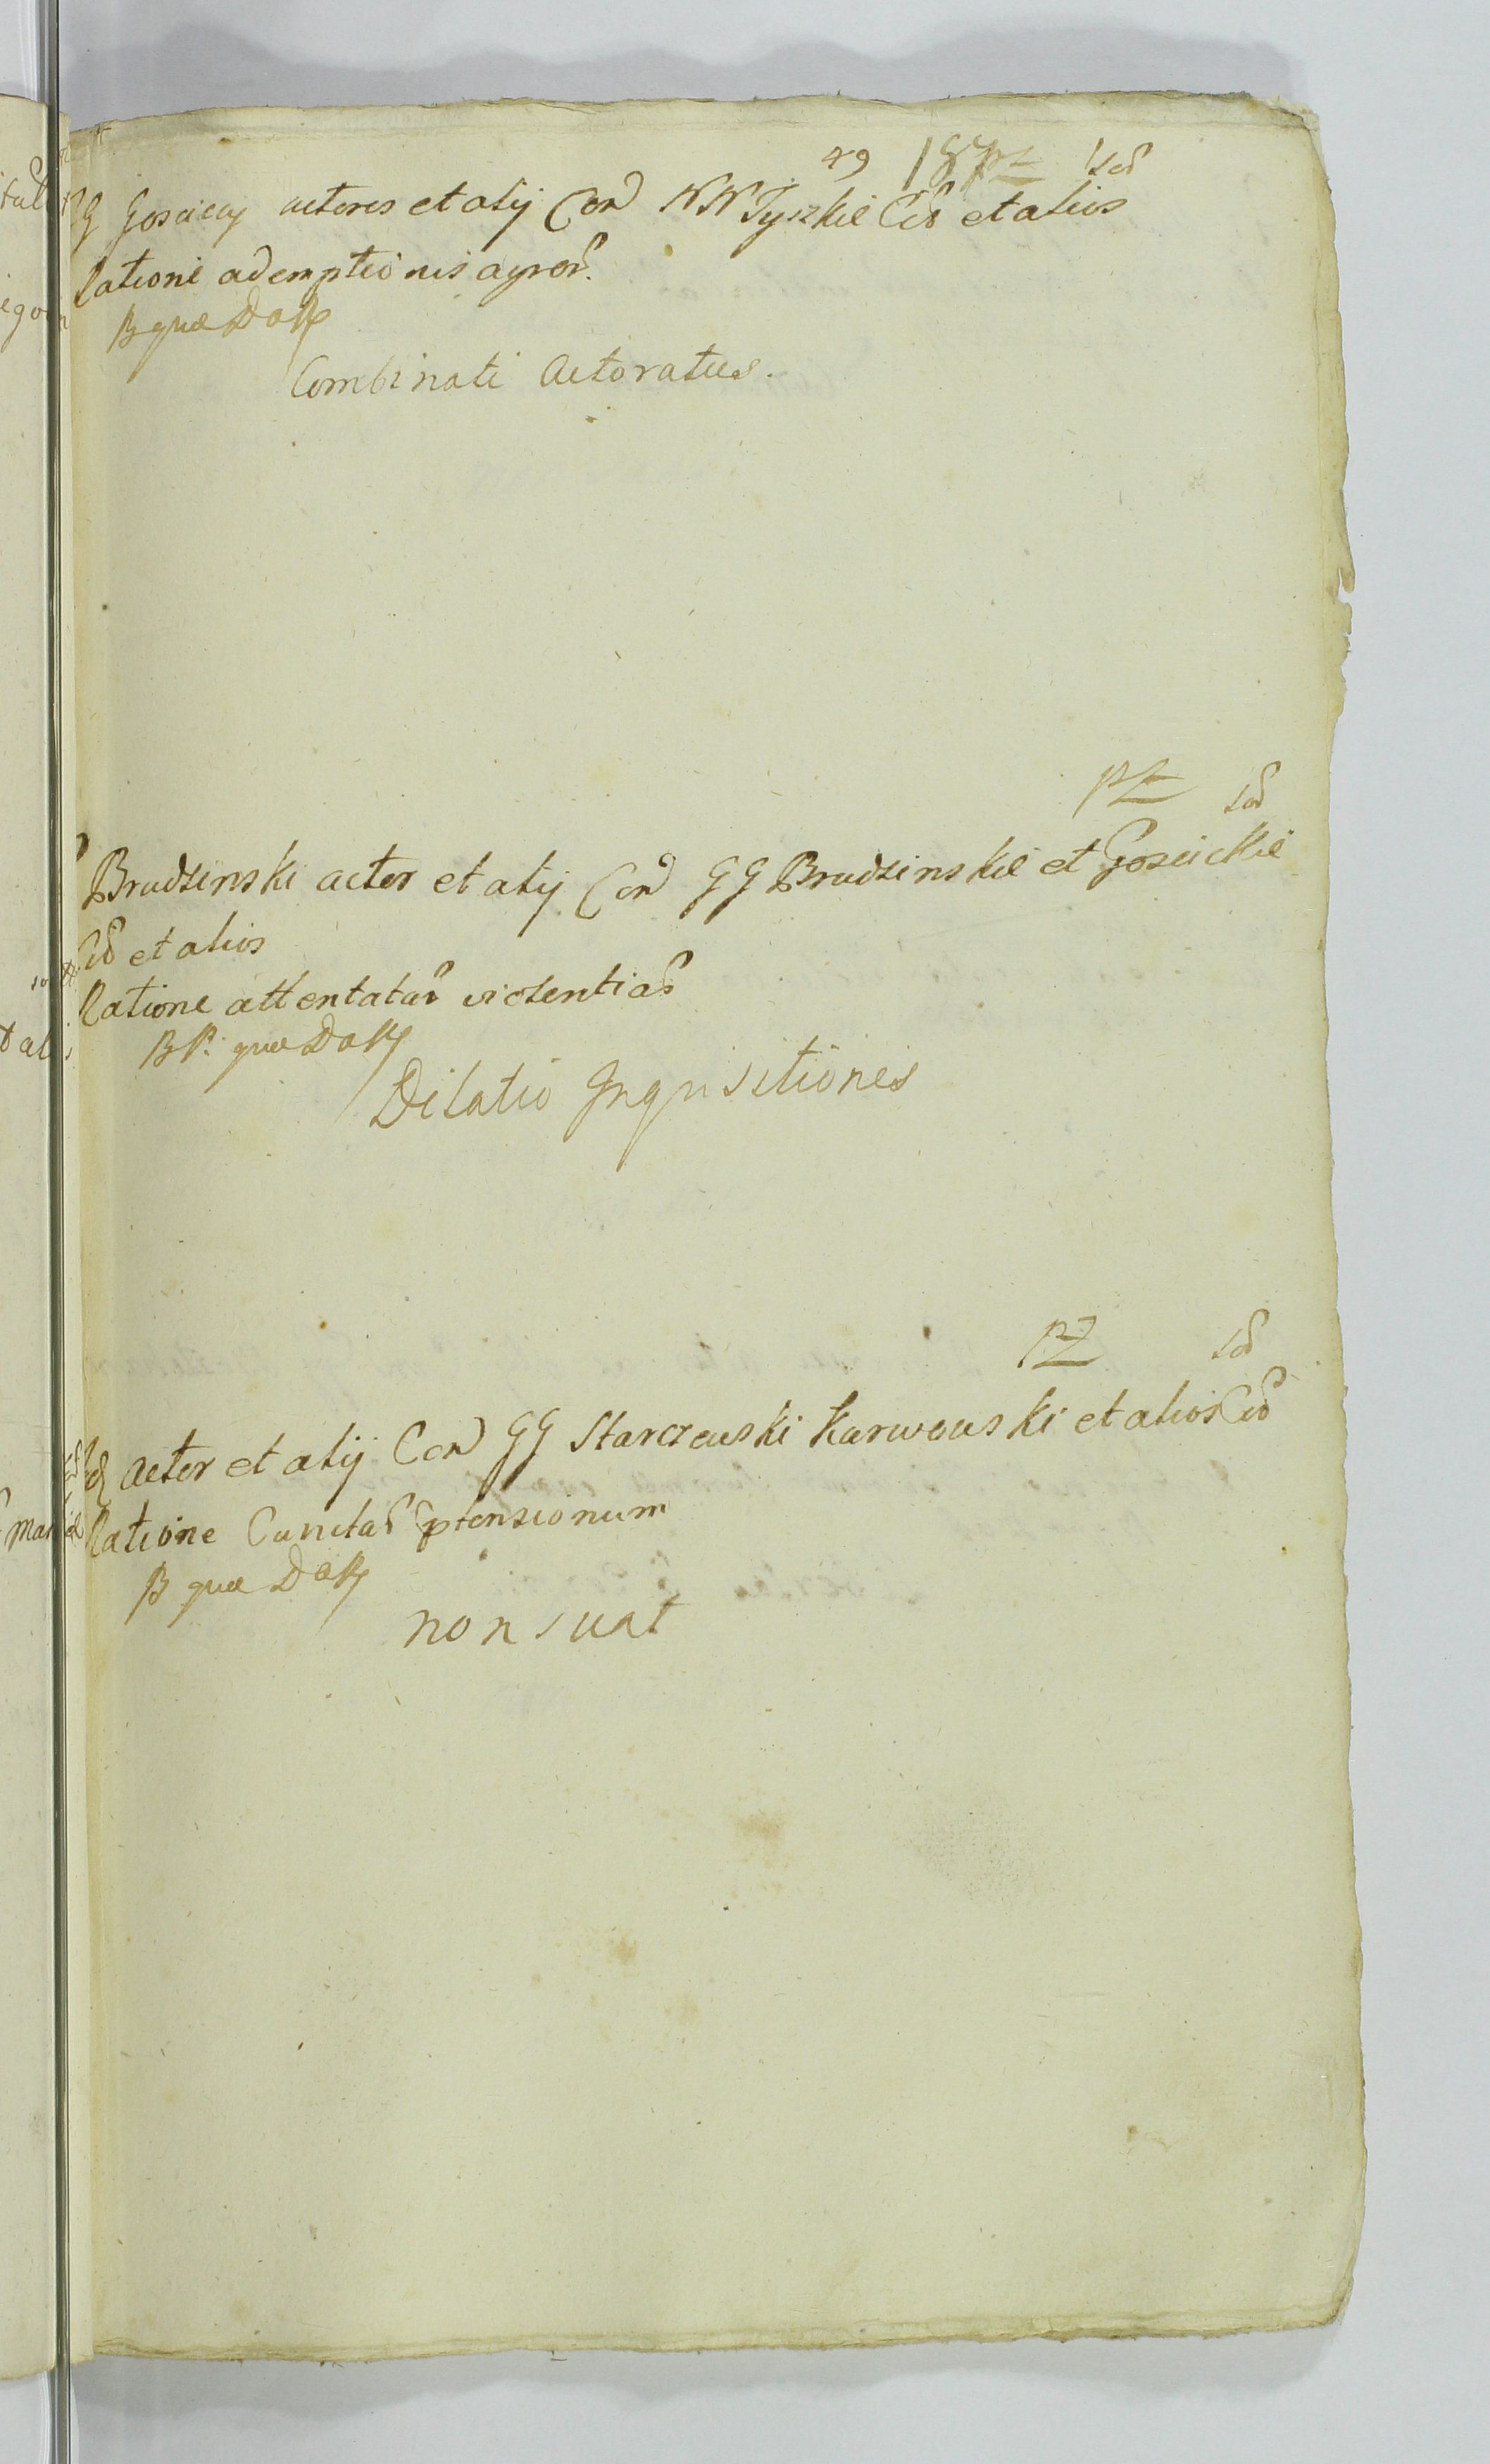 49 187 PZ sol
GG Gosciccy actores et alij Con NN Tyszkie Cit et alios
Ratione ademptionis agror
B quæ Dok
Combinati Actoratus.
PZ sol
Brudzinski actor et alij Con GG Brudzinskie et Goscickie
Cit et alios
Ratione attentatar violentiar
BP. quæ Dok
Dilatio Inquisitionis
PZ sol
actor et alij Con GG Starczewski Karwowski et alios Cit
Ratione Cunctar ptensionum
B quæ Dok
non suat